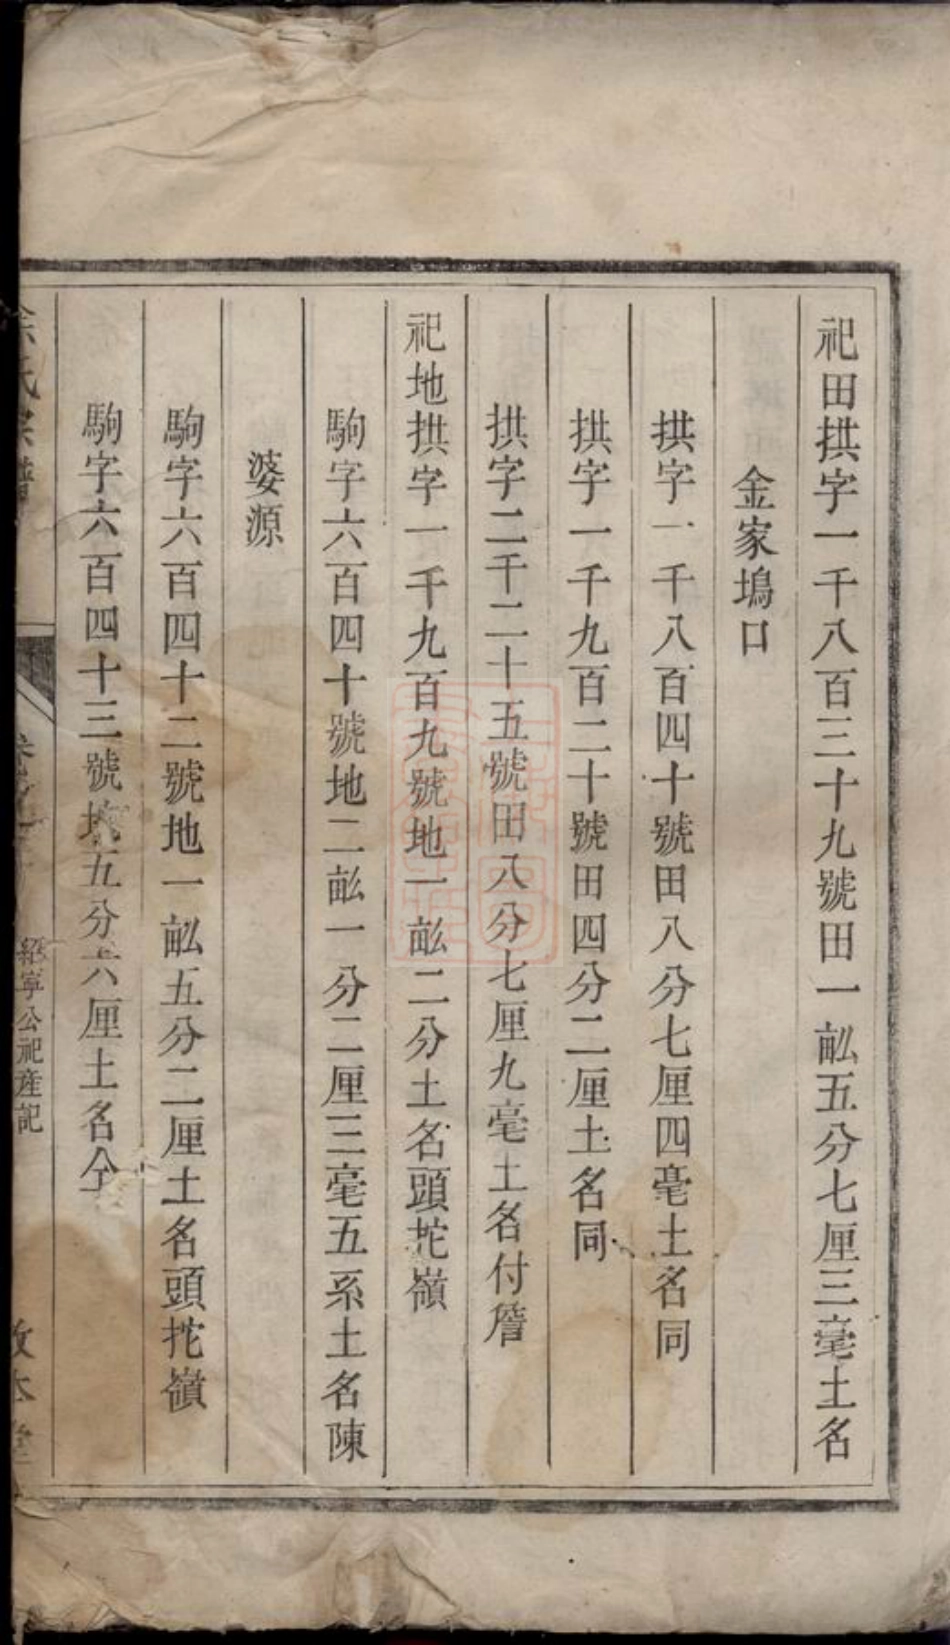 祀田拱字一千八百三十九號田一畆五分七厘三毫土名
金家塢口
拱字一千八百四十號田八分七厘四毫土名同
拱字一千九百二十號田四分二厘土名同
拱字二千二十五號田八分七厘九毫土名付𢈪
祀地拱字一千九百九號地一畆二分土名頭拕嶺
駒字六百四十號地二畆一分二厘三毫五系土名陳
婆源
駒字六百四十二號地一畆五分二厘土名頭拕嶺
駒字六百四十三號地五分六厘土名仝
氏宗譜
紹寧公祀産記
敦本堂